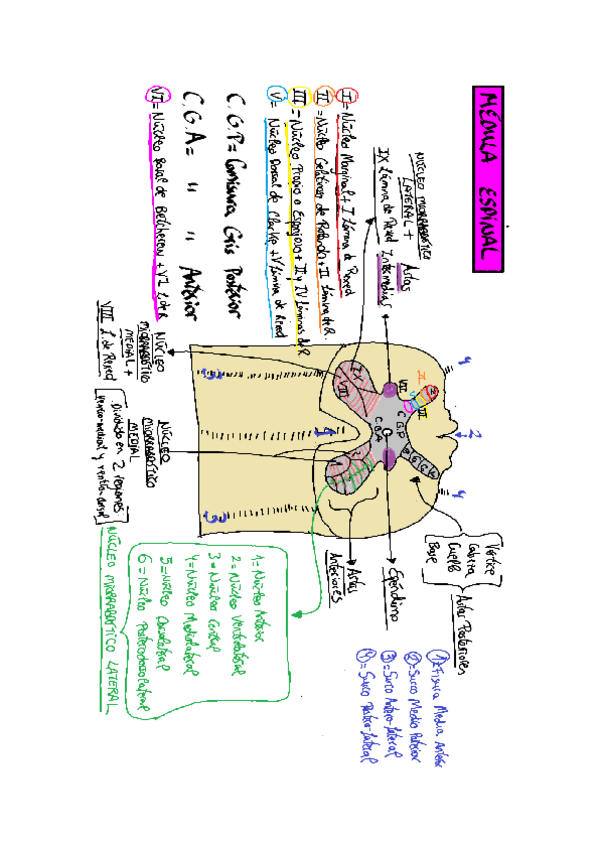 MÉDULA ESPINAL
NÚCLEO MIORRABÓTICO
LATERAL +
IX Lámina de Rexed
Astas
Intermedias
I = Núcleo Marginal + I Lámina de Rexed
II = Núcleo Gelatinoso de Rolando + II Lámina de R.
III = Núcleo Propio o Esponjoso + III y IV Láminas de R
V = Núcleo Dorsal de Clarke + V Lámina de Rexed
C.G.P = Comisura Gris Posterior
C.G.A = " " Anterior
VI = Núcleo Basal de Betcherew + VI L de R
4
2
4
II
III
VII
C.G.P
C.G.A
IX
VIII
3
1
3
Vértice
Cabeza
Cuello
Base
Astas Posteriores
Epéndimo
Astas
Anteriores
1 = Fisura Media Anterior
2 = Surco Medio Posterior
3 = Surco Antero-lateral
4 = Surco Postero-lateral
NÚCLEO
MIORRABÓTICO
MEDIAL +
VIII L. de Rexed
NÚCLEO
MIORRABÓTICO
MEDIAL
Dividido en 2 regiones:
ventromedial y
1 = Núcleo Anterior
2 = Núcleo Ventrolateral
3 = Núcleo Central
4 = Núcleo Mediolateral
5 = Núcleo Dorsolateral
6 = Núcleo Posterodorsolateral
NÚCLEO MIORRABÓTICO LATERAL